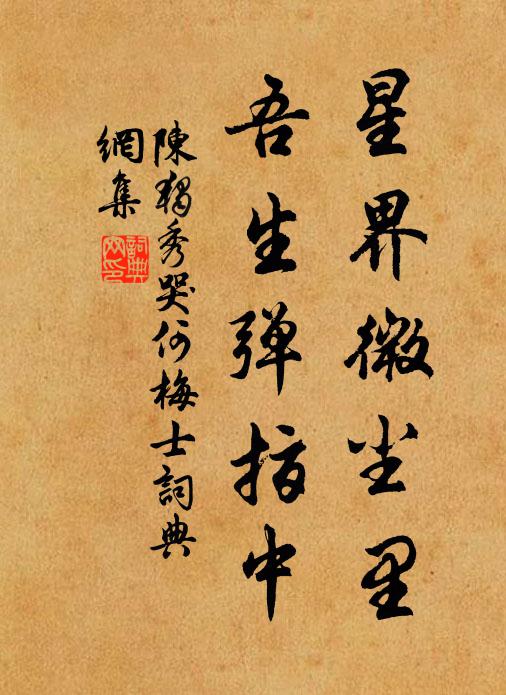 星界微尘里
吾生弹指中
陳獨秀哭何梅士詞典
網集
詞典
网印